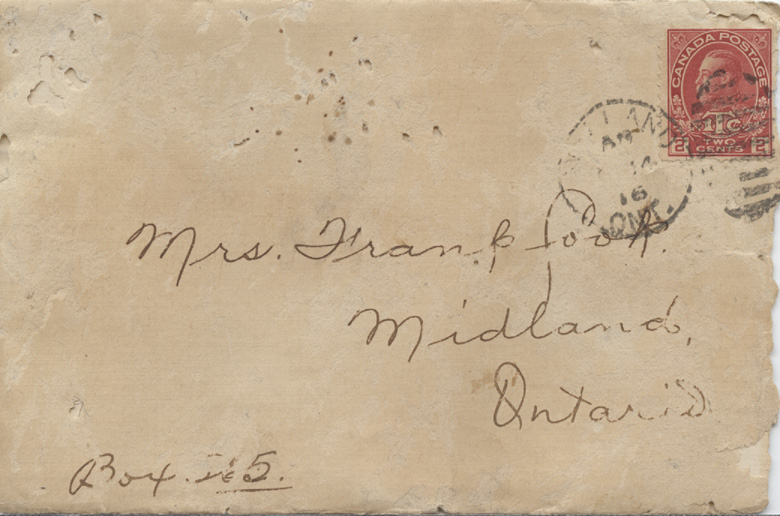 CANADA POSTAGE
1TC
2 TWO CENTS 2
LAND
14
16
ONT.
Mrs. Frank Cook.
Midland,
Ontario
Box. 5.